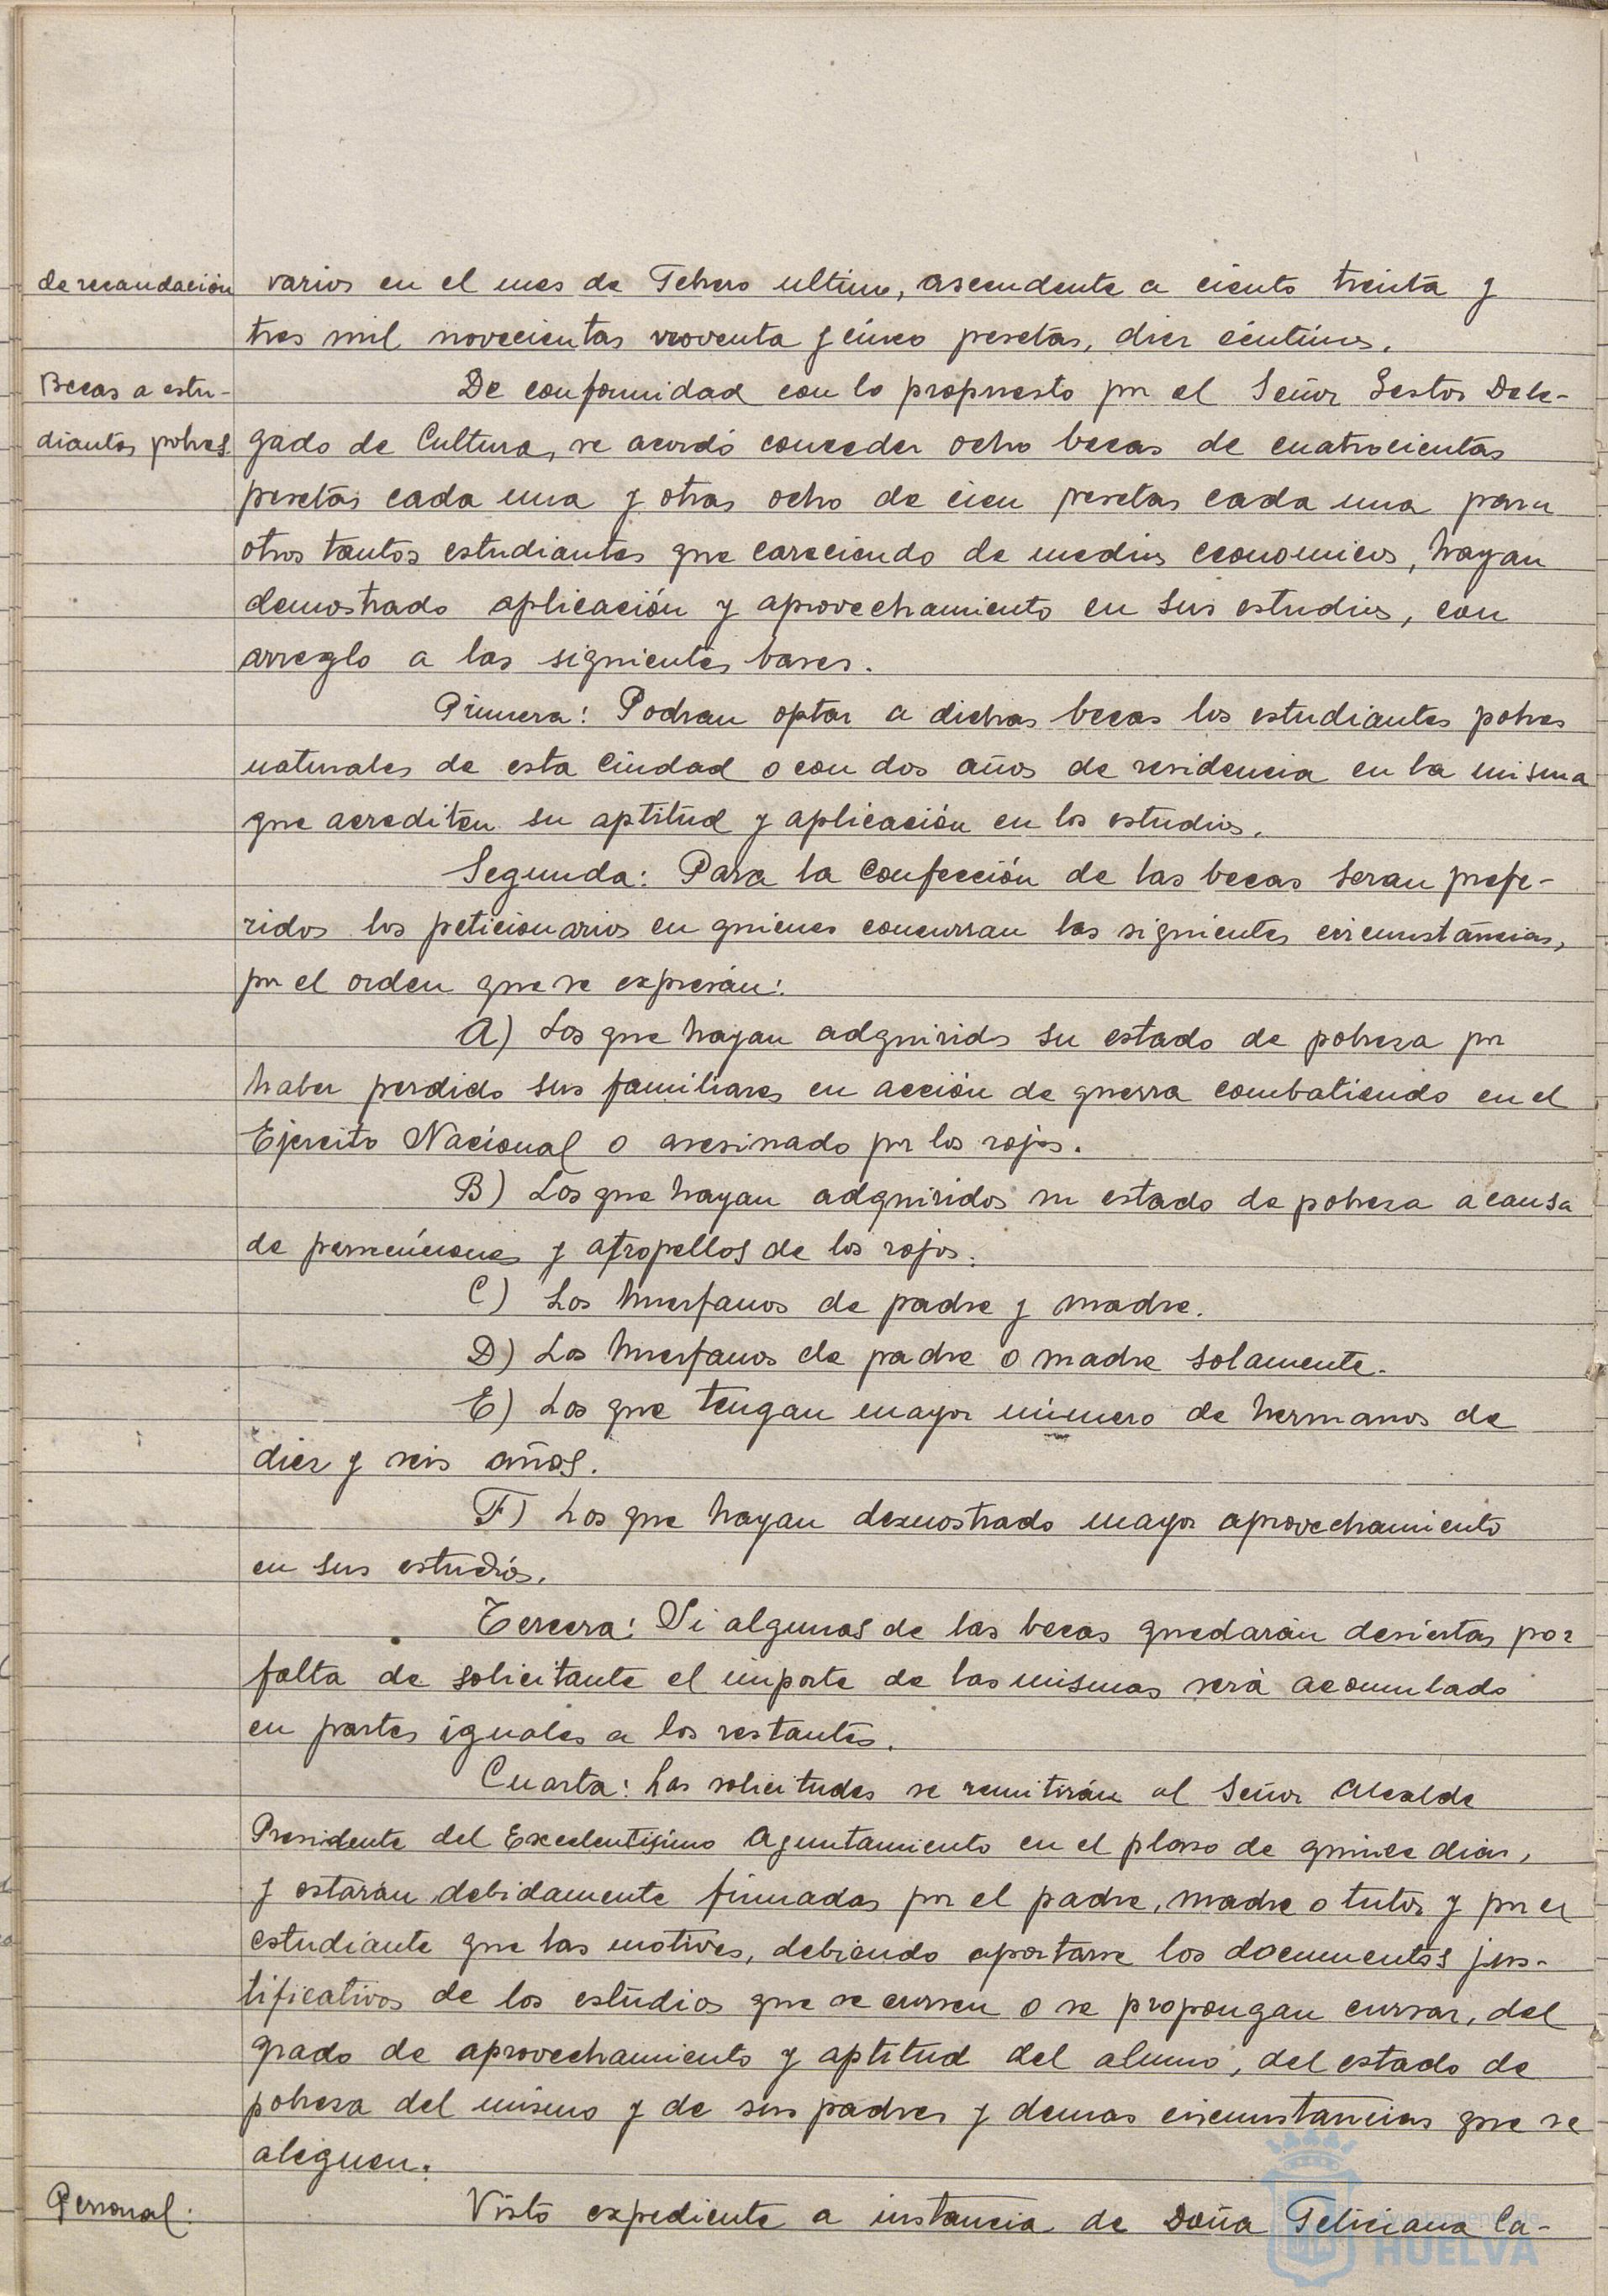 de recaudación varios en el mes de Febrero ultimo, ascendente a ciento treinta y
tres mil novecientas noventa y cinco pesetas, diez céntimos.
Becas a estu- De conformidad con lo propuesto por el Señor Gestor Dele-
diantes pobres gado de Cultura, se acordó conceder ocho becas de cuatrocientas
pesetas cada una y otras ocho de cien pesetas cada una para
otros tantos estudiantes que careciendo de medios economicos, hayan
demostrado aplicación y aprovechamiento en sus estudios, con
arreglo a las siguientes bases.
Primera: Podran optar a dichas becas los estudiantes pobres
naturales de esta Ciudad o con dos años de residencia en la misma
que acrediten su aptitud y aplicación en los estudios.
Segunda: Para la Confección de las becas seran prefe-
ridos los peticionarios en quienes concurran las siguientes circunstancias,
por el orden que se expresan:
A) Los que hayan adquirido su estado de pobreza por
haber perdido sus familiares en acción de guerra combatiendo en el
Ejercito Nacional o asesinado por los rojos.
B) Los que hayan adquiridos su estado de pobreza a causa
de persecuciones y atropellos de los rojos.
C) Los huerfanos de padre y madre.
D) Los huerfanos de padre o madre solamente.
E) Los que tengan mayor número de hermanos de
diez y seis años.
F) Los que hayan demostrado mayor aprovechamiento
en sus estudios.
Tercera: Si algunas de las becas quedarán desiertas por
falta de solicitante el importe de las mismas será acomulado
en partes iguales a los restantes.
Cuarta: Las solicitudes se remitirán al Señor Alcalde
Presidente del Excelentisimo Ayuntamiento en el plazo de quince dias,
y estarán debidamente firmadas por el padre, madre o tutor y por el
estudiante que las motives, debiendo aportarse los documentos jus-
tificativos de los estudios que se cursen o se propongan cursar, del
grado de aprovechamiento y aptitud del alumno, del estado de
pobreza del mismo y de sus padres y demas circunstancias que se
aleguen.
Personal: Visto expediente a instancia de Doña Feliciana Ca-
Ayuntamiento de
HUELVA